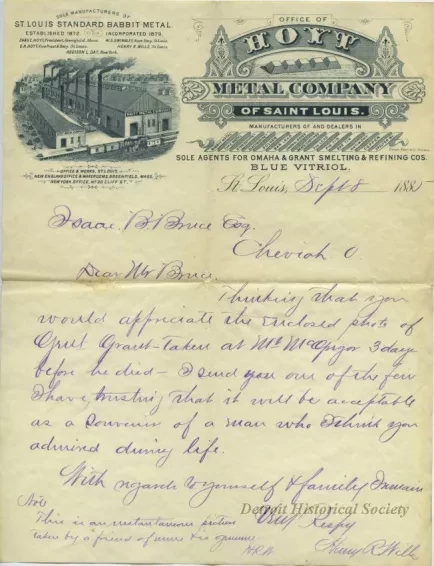 SOLE MANUFACTURERS OF
ST. LOUIS STANDARD BABBIT METAL.
ESTABLISHED 1872. INCORPORATED 1879.
OFFICE OF
HOYT
METAL COMPANY
OF SAINT LOUIS.
MANUFACTURERS OF AND DEALERS IN
SOLE AGENTS FOR OMAHA & GRANT SMELTING & REFINING COS.
BLUE VITRIOL.
OFFICE & WORKS, ST. LOUIS.
NEW ENGLAND OFFICE & WAREROOMS, GREENFIELD, MASS.
NEW YORK OFFICE, NO. 20 CLIFF ST.
St. Louis, Sept 8 188
Isaac B. Bruce Esq.
Cheviot O.
Dear Mr Bruce.
Thinking that you
would appreciate the enclosed photo of
Genl Grant - taken at Mt McGregor 3 days
before he died - I send you one of the few
I have, trusting that it will be acceptable
as a souvenir of a man who I think you
admired during life.
With regards to yourself & family I remain
Very Respy
Henry R. Wills
Note
This is an instantaneous picture
taken by a friend of mine
HRW
Detroit Historical Society